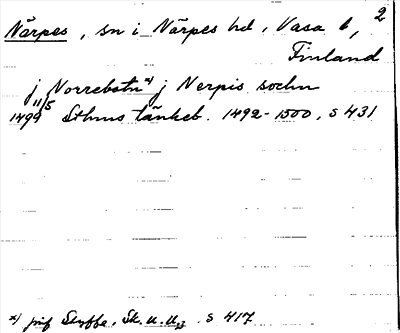 2
Närpes, sn i Närpes hd, Vasa l,
Finland
j Norrebotn x) j Nerpis sockn
11/5
1499 Sthms tänkeb. 1492-1500, s 431
x) jmf Styffe, Sk. u. U., s 417